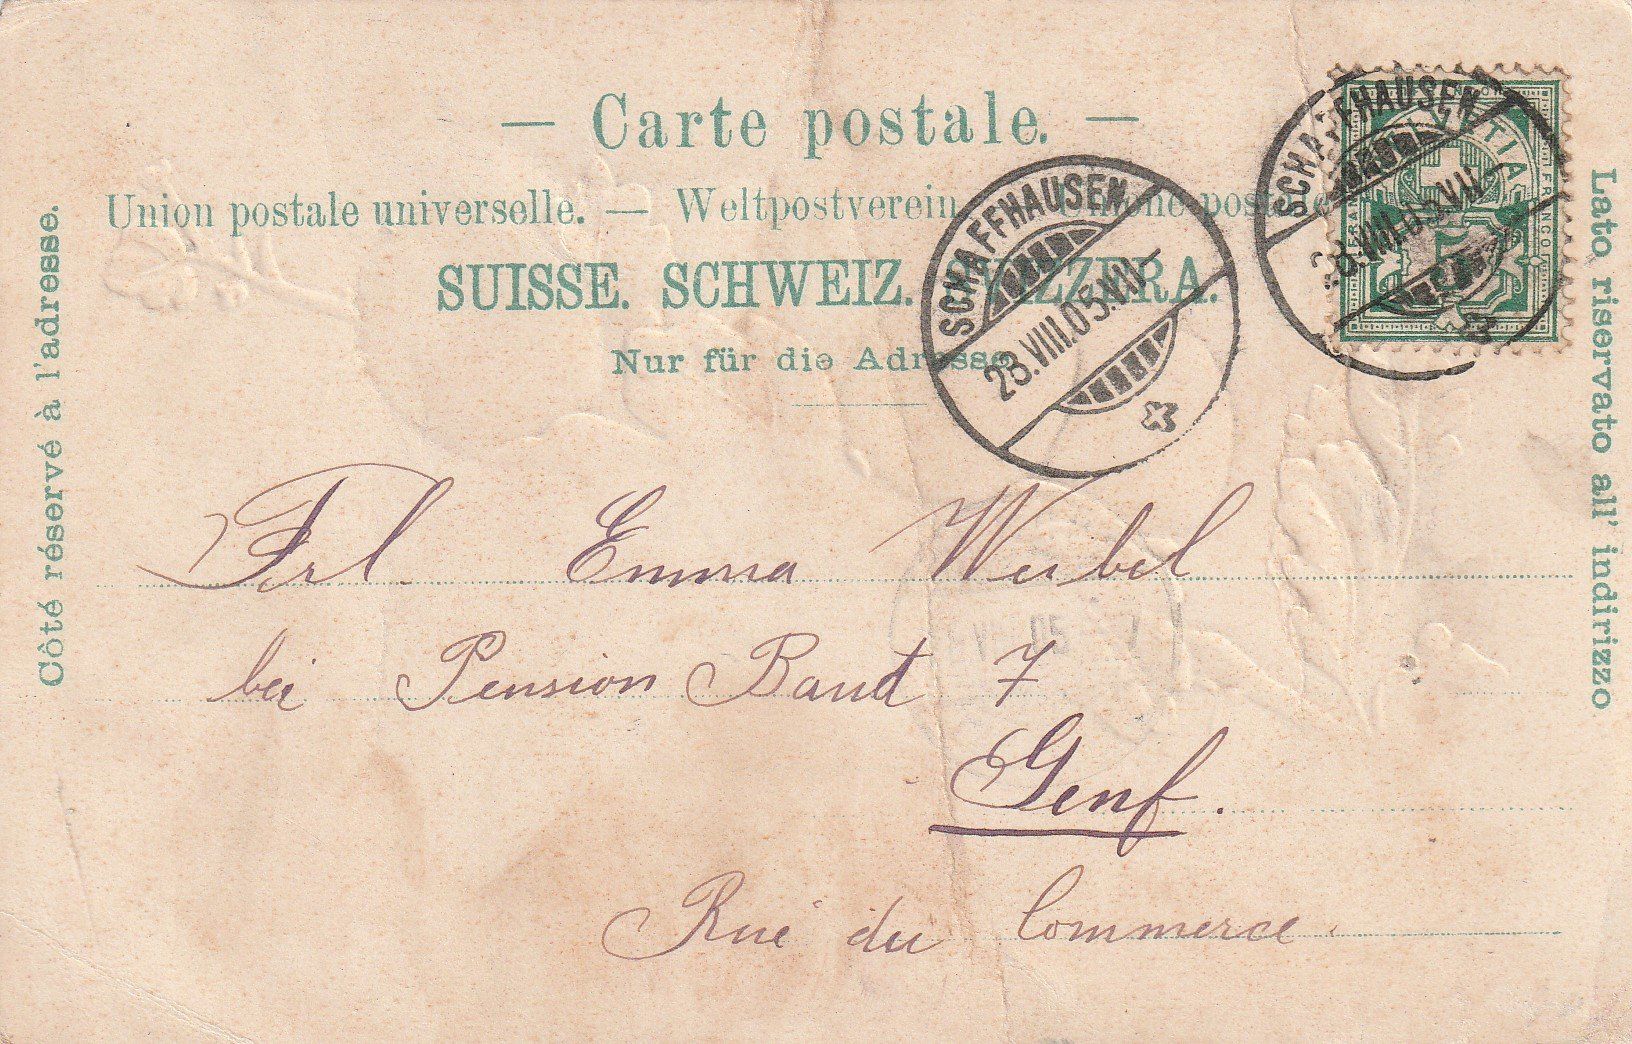 — Carte postale. —
Union postale universelle. — Weltpostverein
SUISSE. SCHWEIZ. SVIZZERA.
Nur für die Adresse.
Côté réservé à l'adresse.
Lato riservato all' indirizzo
SCHAFFHAUSEN
28.VIII.05.VII—
SCHAFFHAUSEN
28.VIII.05.VII
FRANCO
Frl. Emma Weibel
bei Pension Baud 7
Genf.
Rue du Commerce.